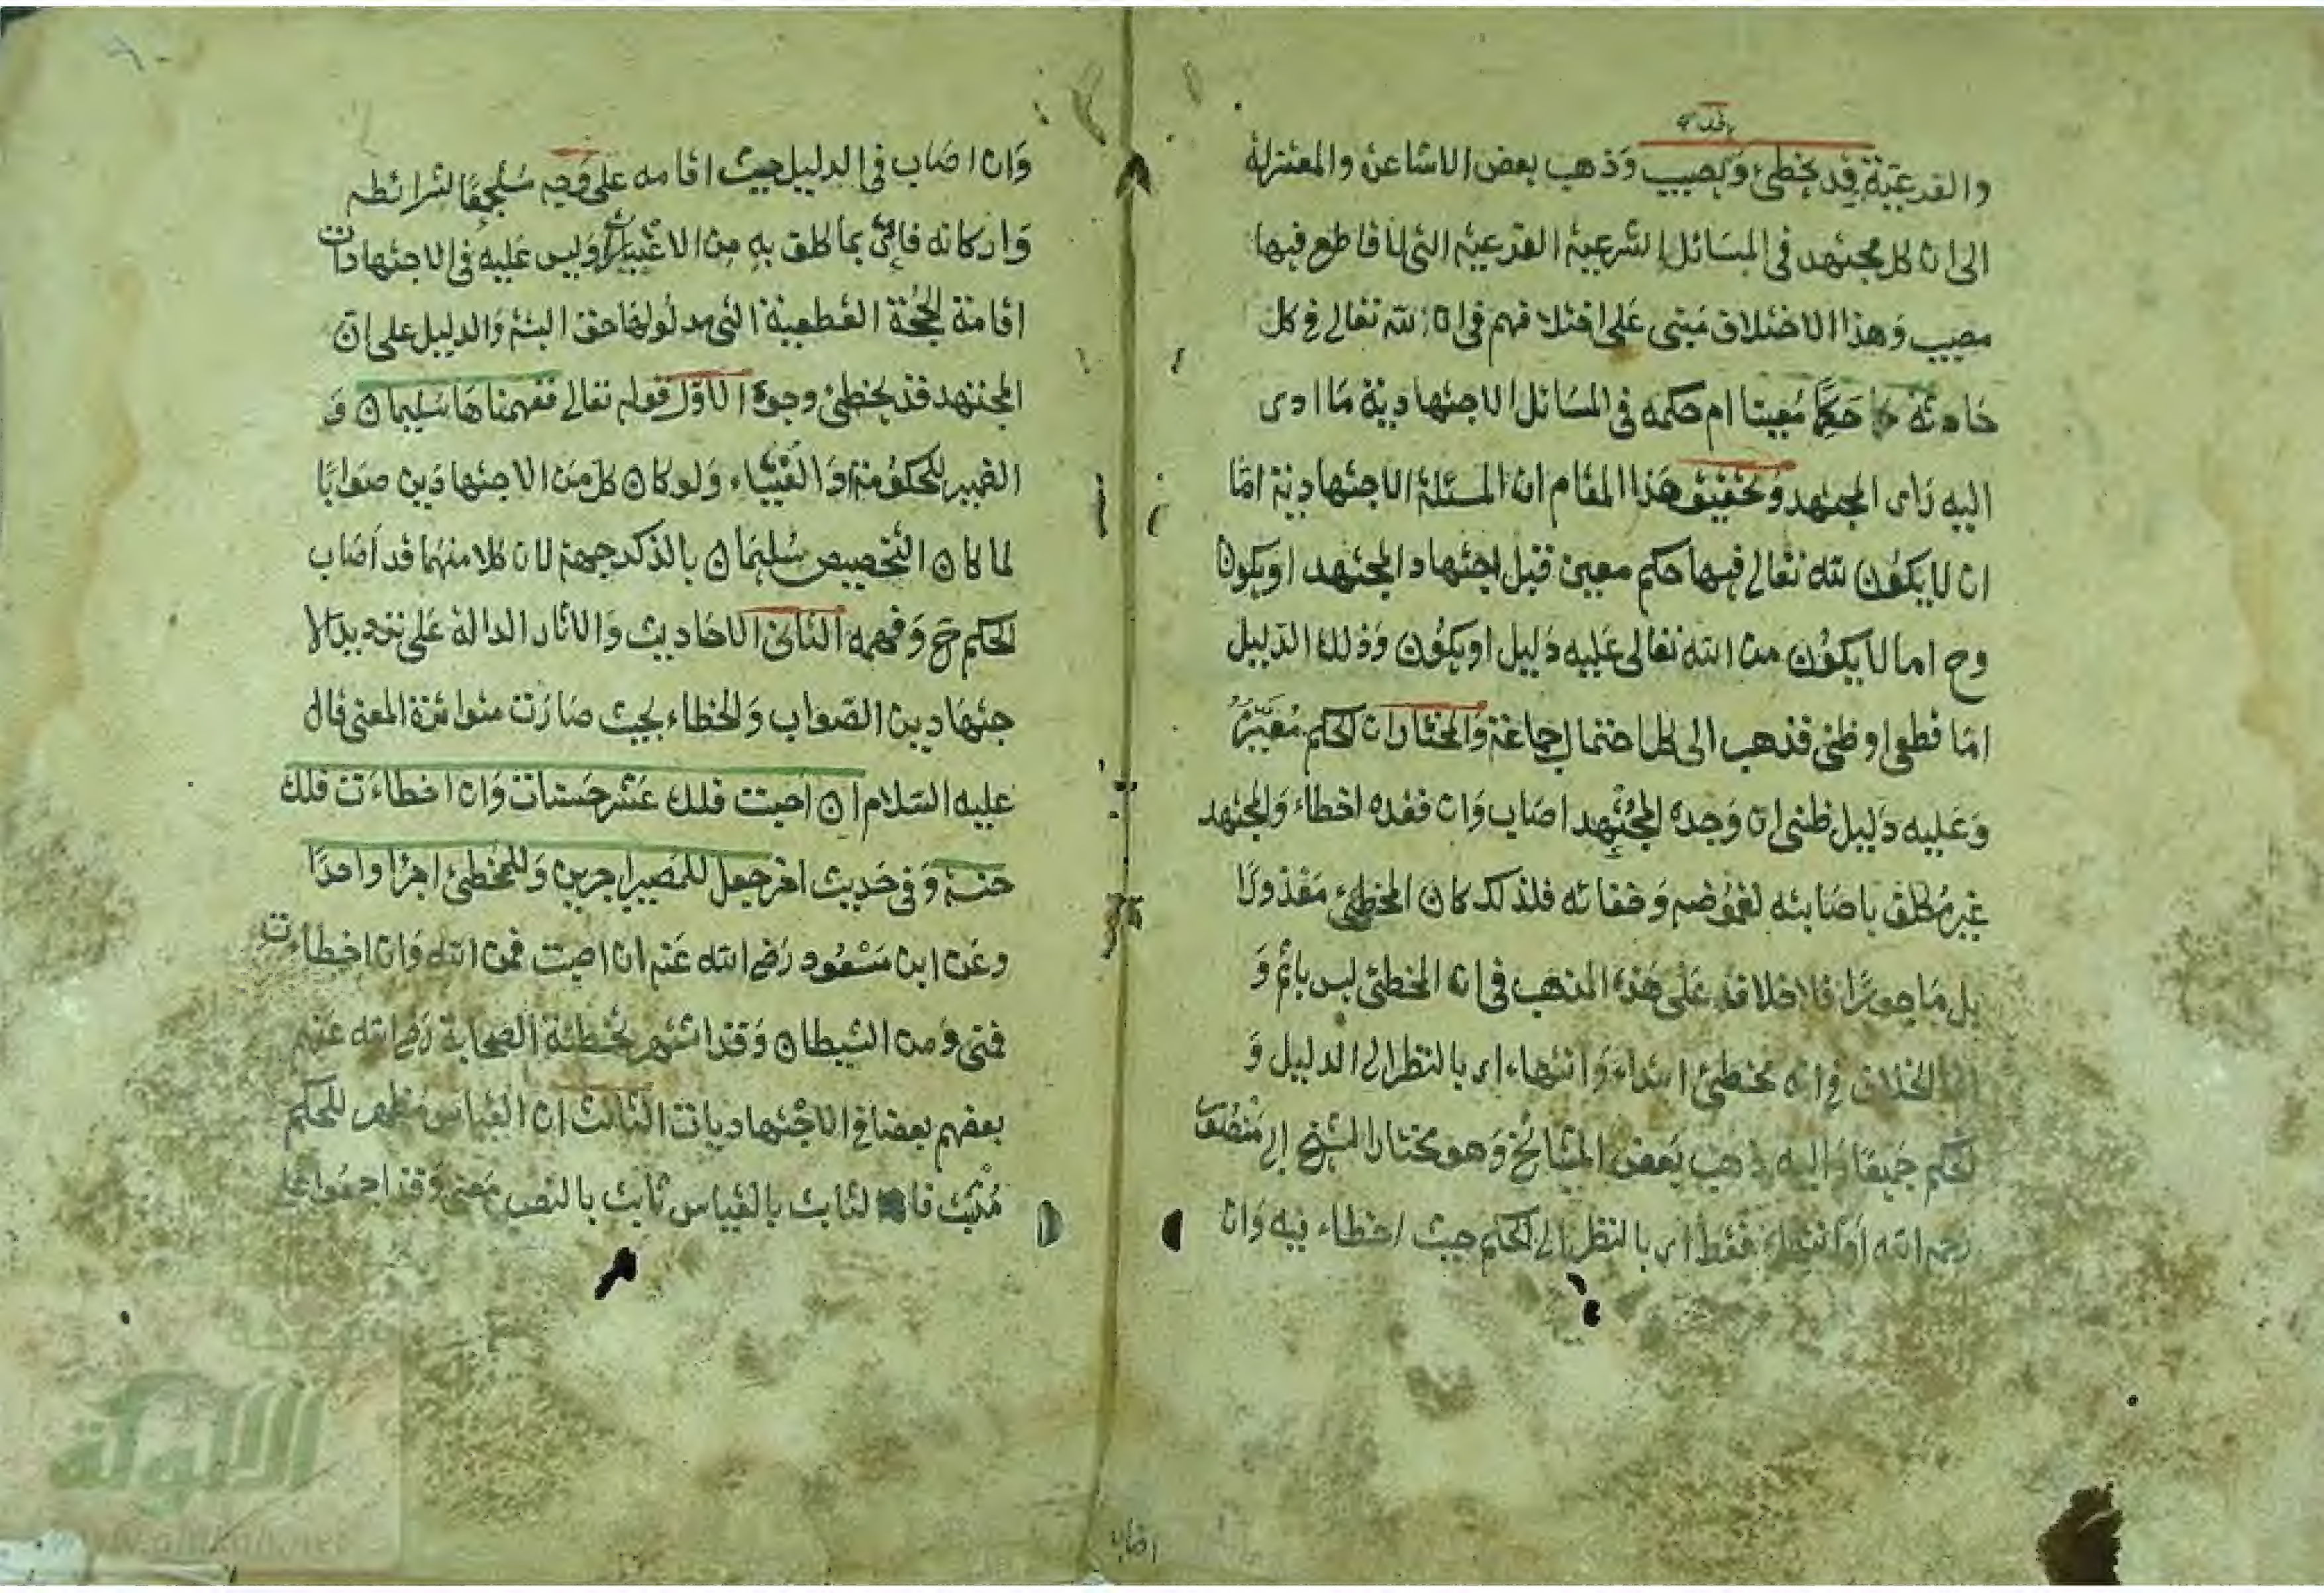 والفرعية قد يخطئ ويصيب وذهب بعض الاشاعرة والمعتزلة
الى ان كل مجتهد في المسائل الشرعية الفرعية التي لا قاطع فيها
مصيب وهذا الاختلاف مبنى على اختلافهم في ان لله تعالى في كل
حادثة حكما معينا ام حكمه في المسائل الاجتهادية ما ادى
اليه راى المجتهد وتحقيق هذا المقام ان المسئلة الاجتهادية امّا
ان لا يكون لله تعالى فيها حكم معين قبل اجتهاد المجتهد او يكون
وح اما لا يكون من الله تعالى عليه دليل او يكون وذلك الدليل
امّا قطعى او ظنى فذهب الى كل احتمال جماعة والمختار ان الحكم معين
وعليه دليل ظنى ان وجده المجتهد اصاب وان فقده اخطاء والمجتهد
غير مكلف باصابته لغموضه وخفائه فلذلك كان المخطئ معذورًا
بل ماجورًا فلا خلاف على هذه المذهب في ان المخطئ ليس باثم و
الخلاف في انه مخطئ ابتداء وانتهاء اى بالنظر الى الدليل و
الحكم جميعا واليه ذهب بعض المشائخ وهو مختار الشيخ ابى منصور
رحمه الله او انتهاء فقط اى بالنظر الى الحكم حيث اخطاء فيه وان
اصاب
وان اصاب في الدليل حيث اقامه على وجهه مستجمعًا لشرائطه
واركانه فاتى بما كلف به من الاعتبارات وليس عليه في الاجتهادات
اقامة الحجة القطعية التي مدلولها حق البتة والدليل على ان
المجتهد قد يخطئ وجوه الاوّل قوله تعالى ففهمناها سليمان و
الضمير للحكومة او الفتياء ولو كان كل من الاجتهادين صوابًا
لما كان التخصيص سليمان بالذكر جهة لان كلا منهما قد اصاب
الحكم ح وفهمه الثانى الاحاديث والاثار الدالة على ترديد الا
جتهاد بين الصواب والخطاء بحيث صارت متواترة المعنى قال
عليه السلام ان اصبت فلك عشر حسنات وان اخطاءت فلك
حسنة وفى حديث اخر جعل للمصيب اجرين وللمخطئ اجرًا واحدًا
وعن ابن مسعود رضى الله عنه ان اصبت فمن الله وان اخطاءت
فمنى ومن الشيطان وقد اشتهر تخطئة الصحابة رضى الله عنهم
بعضهم بعضا في الاجتهاديات الثالث ان القياس مظهر للحكم
مثبت فان الثابت بالقياس ثابت بالنص معنى وقد اجمعوا على
الألوكة
www.alukah.net